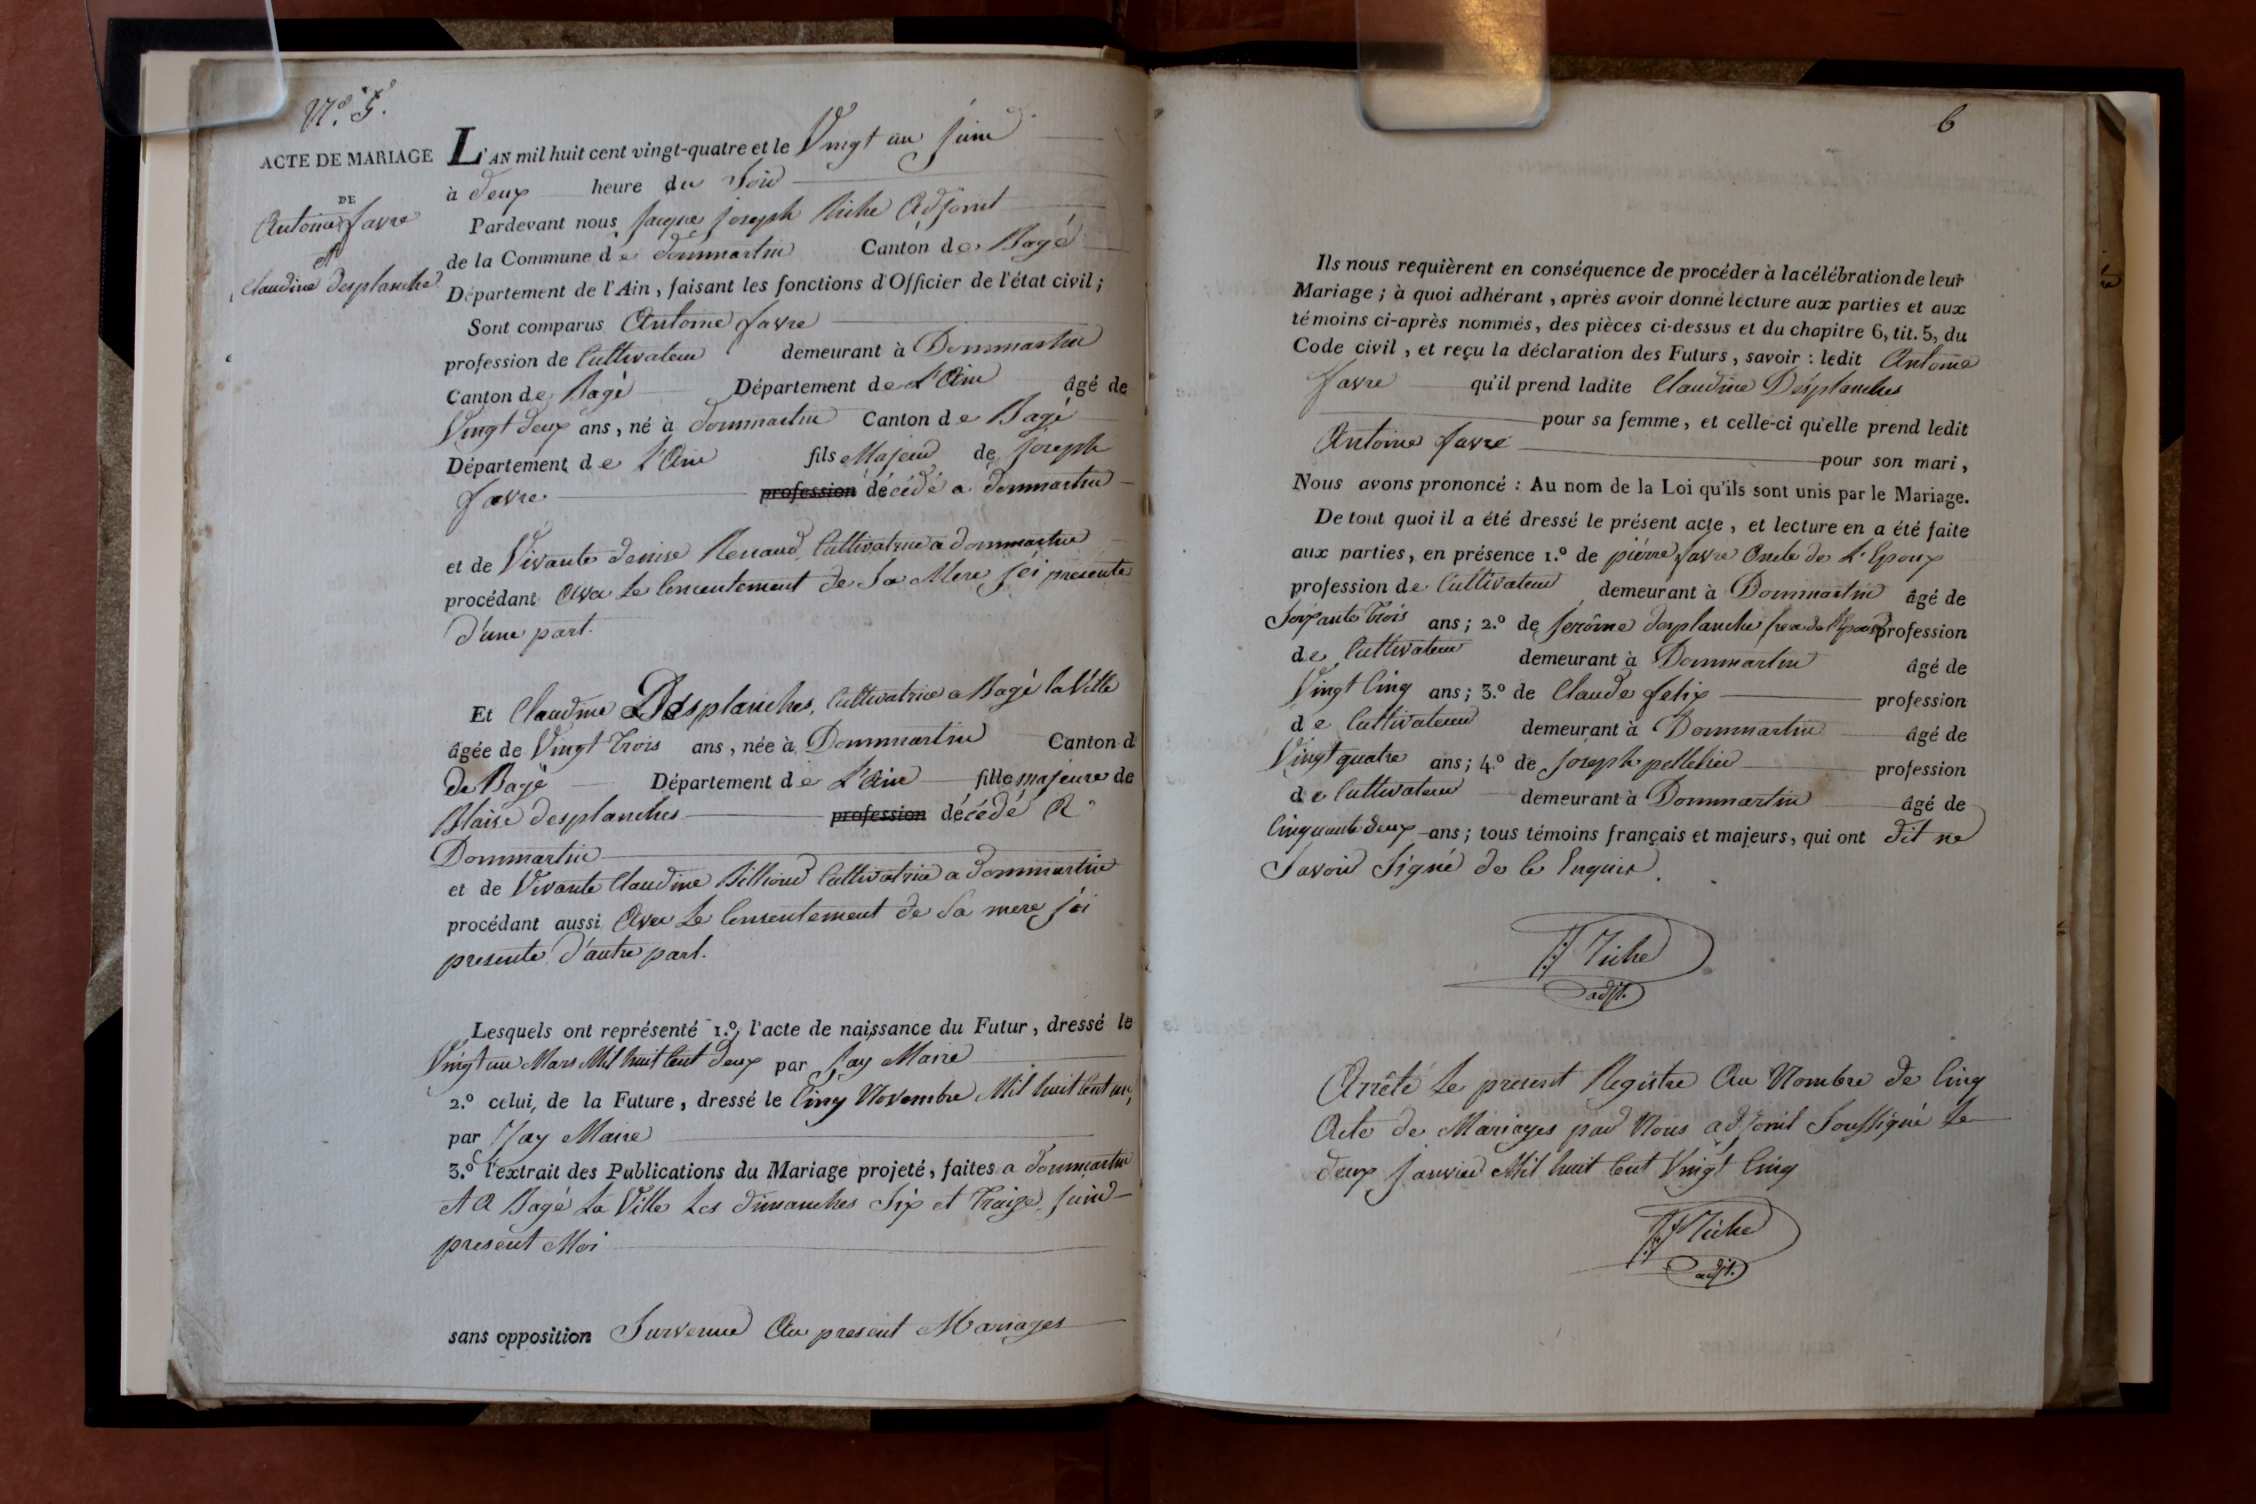 N.° 5.
ACTE DE MARIAGE
DE
Antoine favre
et
Claudine desplanche
L'AN mil huit cent vingt-quatre et le Vingt un juin
à deux heure du Soir
Pardevant nous jacque joseph Riche Adjoint
de la Commune de dommartin Canton de Bagé
Département de l'Ain, faisant les fonctions d'Officier de l'état civil;
Sont comparus Antoine favre
profession de Cultivateur demeurant à Dommartin
Canton de Bagé Département de L'Ain âgé de
Vingt deux ans, né à dommartin Canton de Bagé
Département de L'Ain fils Majeur de joseph
favre profession décédé a dommartin
et de Vivante denise Renaud Cultivatrice a dommartin
procédant Avec Le Concentement de Sa Mere jci presente
d'une part.
Et Claudine Desplanches, Cultivatrice a Bagé la Ville
âgée de Vingt trois ans, née à Dommartin Canton d
de Bagé Département de L'Ain fille majeure de
Blaise desplanches profession décédé A
Dommartin
et de Vivante Claudine Billioud Cultivatrice a dommartin
procédant aussi Avec Le Consentement de Sa mere jci
presente d'autre part.
Lesquels ont représenté 1.° l'acte de naissance du Futur, dressé le
Vingt un Mars Mil huit Cent deux par jay Maire
2.° celui, de la Future, dressé le Cinq Novembre Mil huit Cent un,
par Jay Maire
3.° l'extrait des Publications du Mariage projeté, faites a dommartin
et A Bagé La Ville Les dimanches Six et Traize Juin
present Moi
sans opposition Survenue Au present Mariages
6
Ils nous requièrent en conséquence de procéder à la célébration de leur
Mariage; à quoi adhérant, après avoir donné lecture aux parties et aux
témoins ci-après nommés, des pièces ci-dessus et du chapitre 6, tit. 5, du
Code civil, et reçu la déclaration des Futurs, savoir: ledit Antoine
favre qu'il prend ladite Claudine Desplanches
pour sa femme, et celle-ci qu'elle prend ledit
Antoine favre pour son mari,
Nous avons prononcé: Au nom de la Loi qu'ils sont unis par le Mariage.
De tout quoi il a été dressé le présent acte, et lecture en a été faite
aux parties, en présence 1.° de piérre favre Oncle de L'Epoux
profession de Cultivateur demeurant à Dommartin âgé de
Soixante trois ans; 2.° de jerôme desplanche frere de l'Epouse profession
de Cultivateur demeurant à Dommartin âgé de
Vingt Cinq ans; 3.° de Claude felix profession
de Cultivateur demeurant à Dommartin âgé de
Vingt quatre ans; 4.° de joseph pelletier profession
de Cultivateur demeurant à Dommartin âgé de
Cinquante deux ans; tous témoins français et majeurs, qui ont dit ne
Savoir Signé de Ce Enquis.
JJ Riche
adjt.
Arrêté Le present Registre Au Nombre de Cinq
Acte de Mariages par Nous adjoint Soussigné Le
deux janvier Mil huit Cent Vingt Cinq
JJ Riche
adjt.